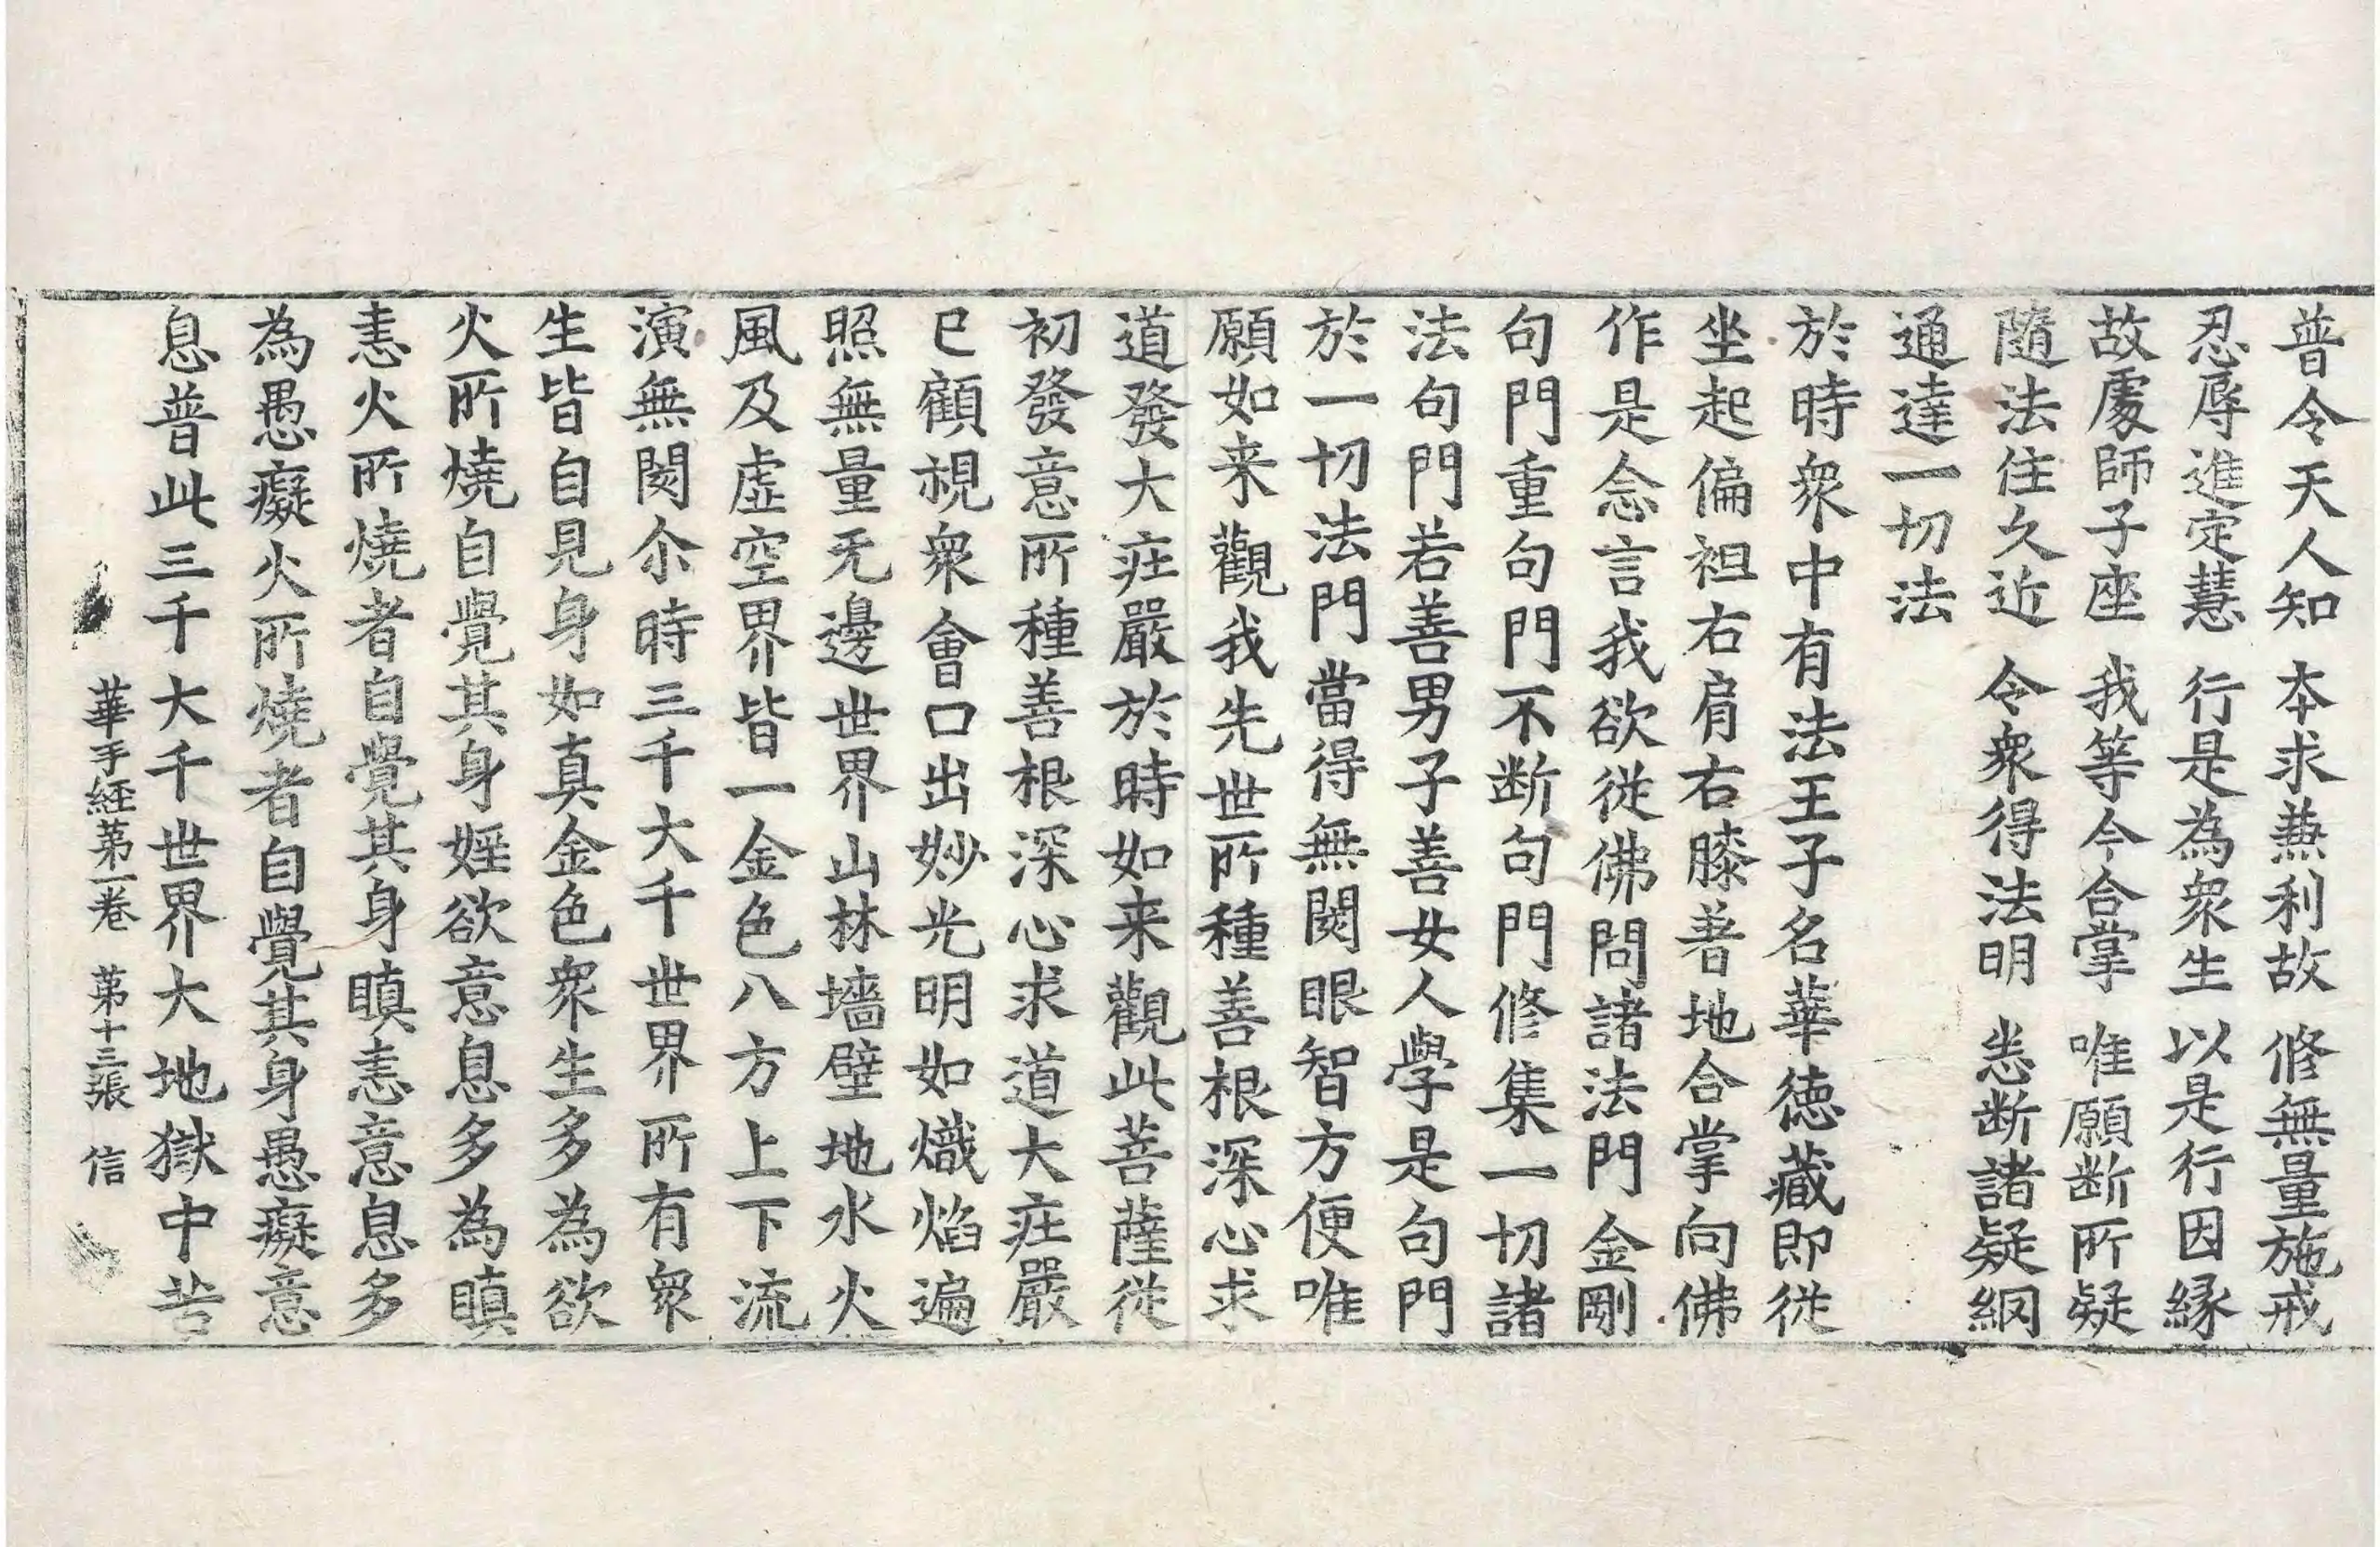 普令天人知 本求兼利故 修無量施戒
忍辱進定慧 行是為衆生 以是行因緣
故處師子座 我等今合掌 唯願断所疑
隨法住久近 令衆得法明 悉断諸疑網
通達一切法
於時衆中有法王子名華徳藏即從
坐起偏袒右肩右膝著地合掌向佛
作是念言我欲從佛問諸法門金剛
句門重句門不断句門修集一切諸
法句門若善男子善女人學是句門
於一切法門當得無閡眼智方便唯
願如来觀我先世所種善根深心求
道發大庄嚴於時如来觀此菩薩從
初發意所種善根深心求道大庄嚴
已顧視衆會口出妙光明如熾焰遍
照無量无邊世界山林墻壁地水火
風及虛空界皆一金色八方上下流
演無閡尒時三千大千世界所有衆
生皆自見身如真金色衆生多為欲
火所燒自覺其身婬欲意息多為瞋
恚火所燒者自覺其身瞋恚意息多
為愚癡火所燒者自覺其身愚癡意
息普此三千大千世界大地獄中苦
華手経苐一卷 苐十三張 信